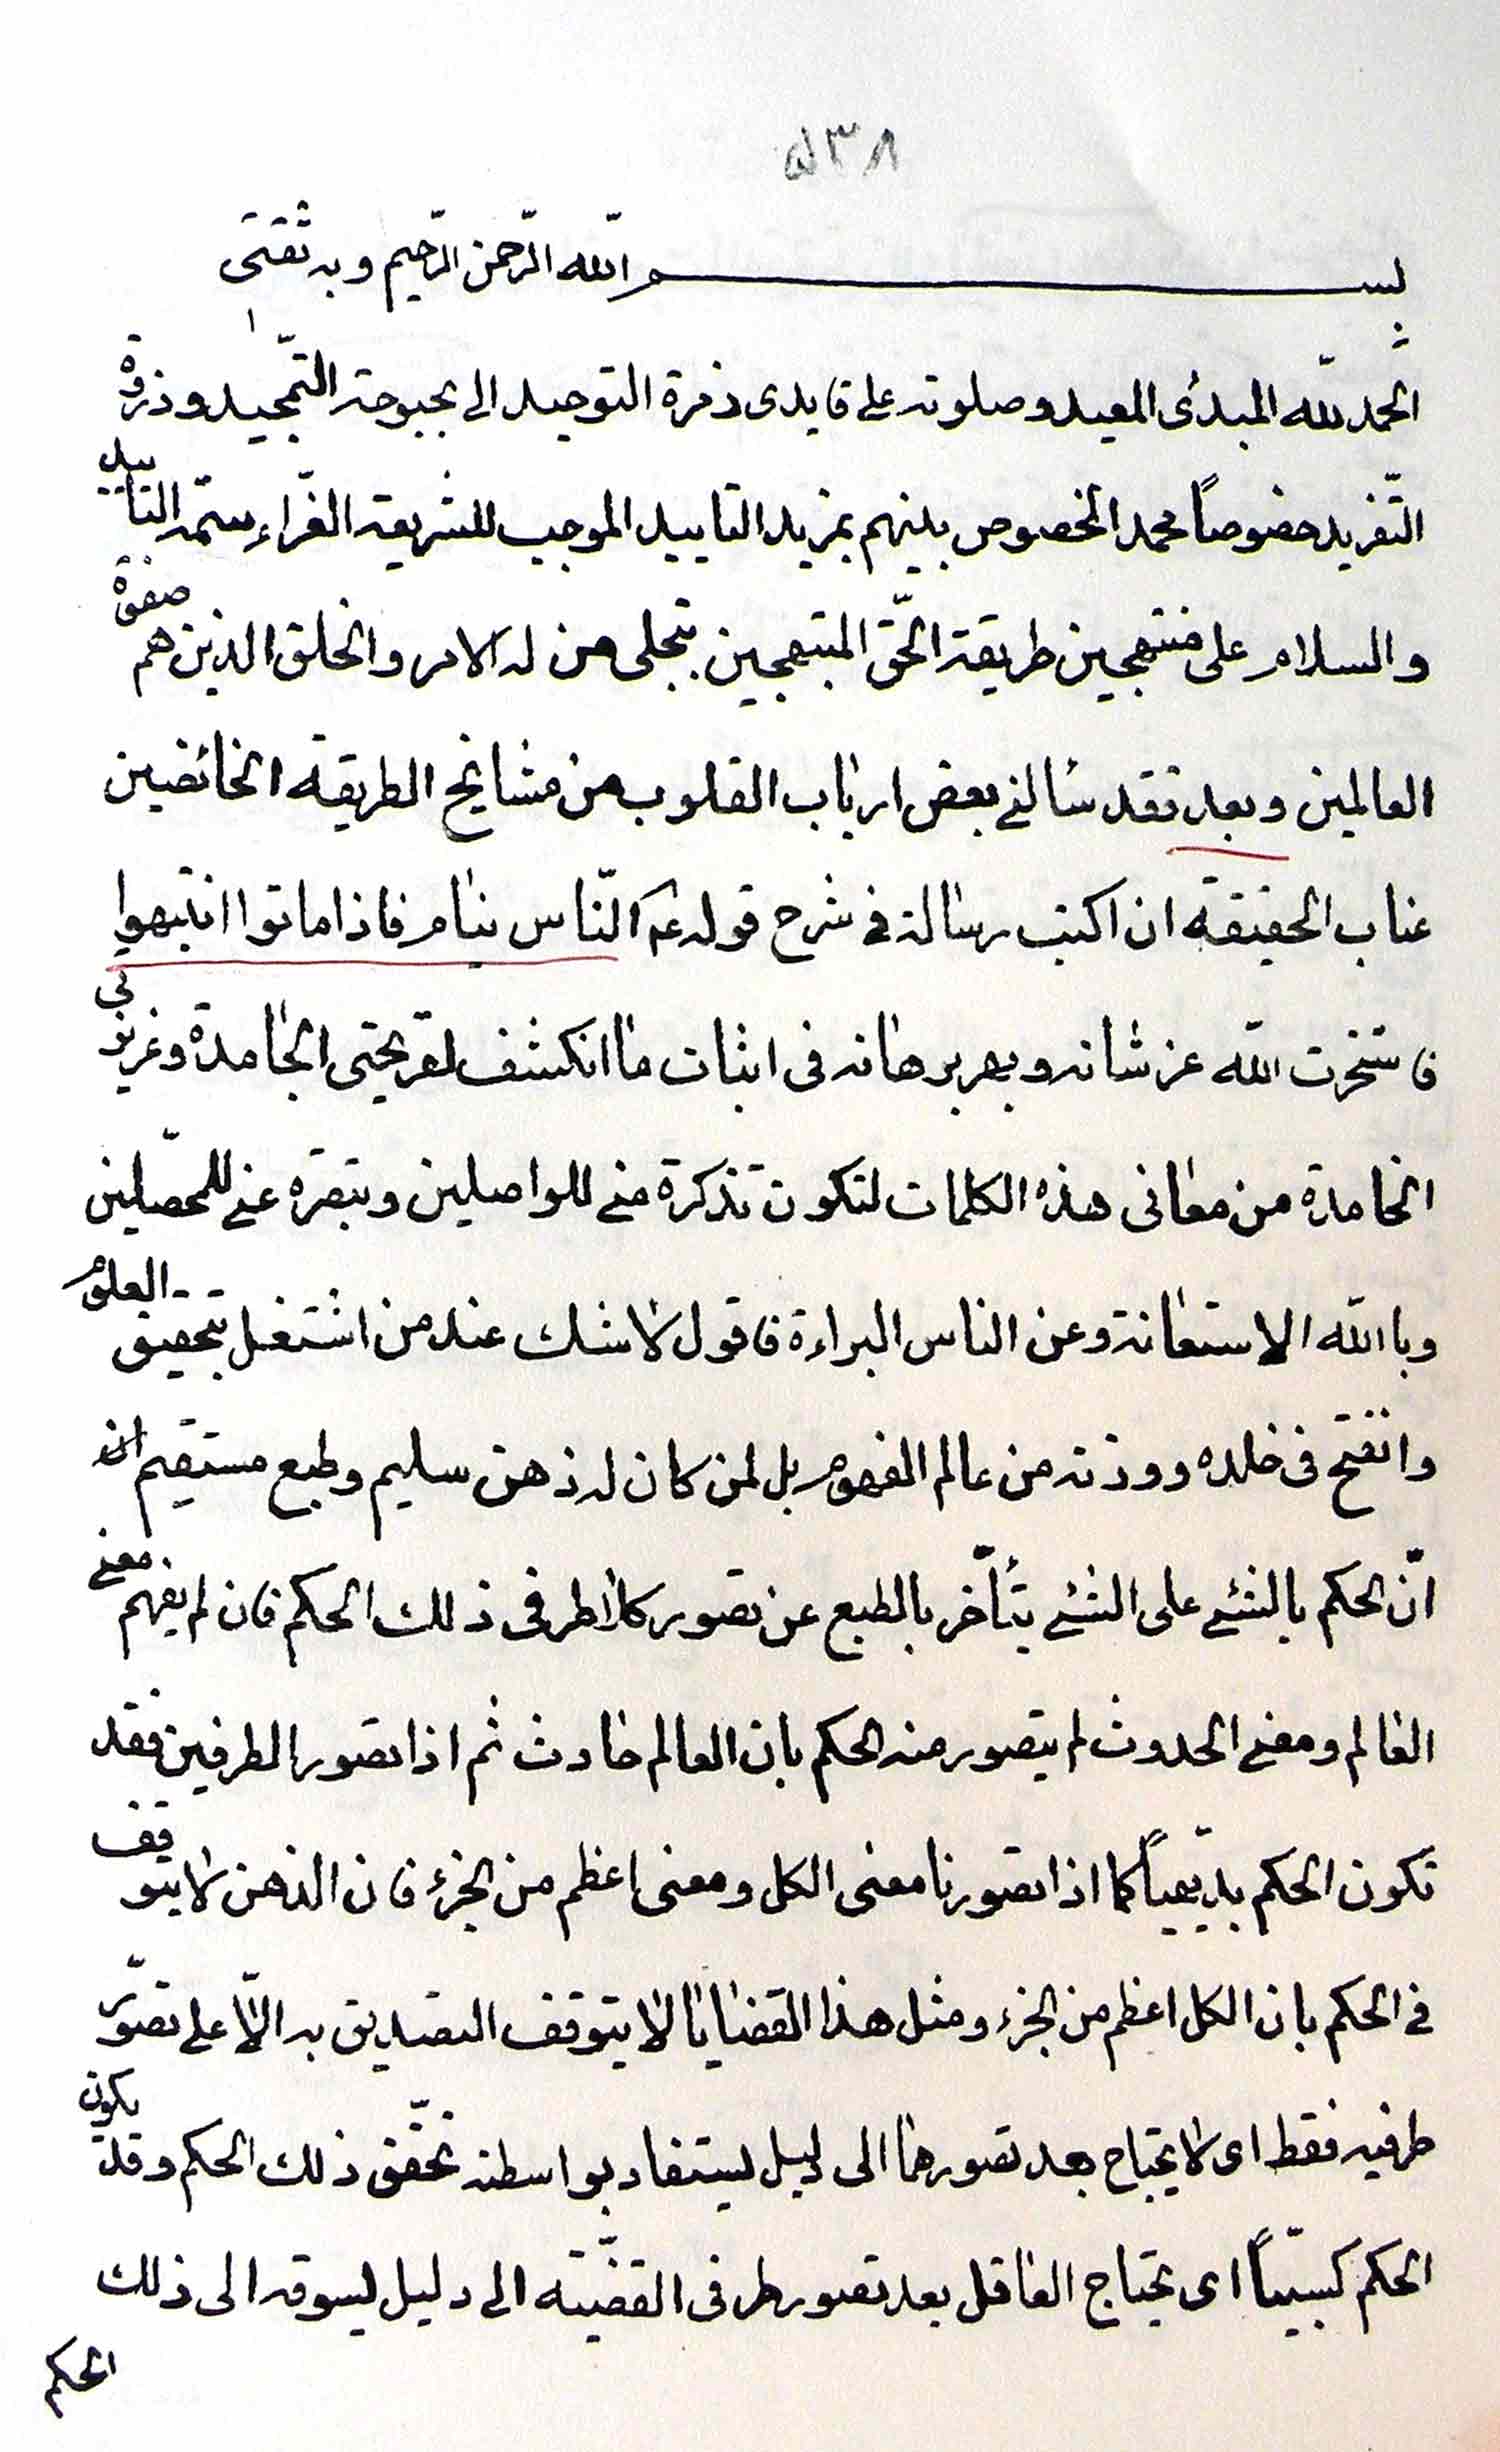 ٥٣٨
بسم الله الرّحمن الرّحيم وبه ثقتى
الحمد لله المبدئ المعيد وصلوته على قايدى زمرة التوحيد الى بحبوحة التّمجيد وذروة
التّفريد خصوصاً محمد المخصوص بينهم بمزيد التاييد الموجب للشريعة الغرّاء سمة التابيد
والسلام على منتهجين طريقة الحقّ المبتهجين بتجلى من له الامر والخلق الذين هم صفوة
العالمين وبعد فقد سألنى بعض ارباب القلوب من مشايخ الطريقة الخائضين
عباب الحقيقة ان اكتب رسالة فى شرح قوله عم النّاس نيام فاذا ماتوا انتبهوا
فاستخرت الله عز شانه وبهر برهانه فى اثبات ما انكشف لقريحتى الجامدة وغريزتى
الخامدة من معانى هذه الكلمات لتكون تذكرة منى للواصلين وتبصره عنى للمحصّلين
وبا الله الاستعانة وعن الناس البراءة فاقول لا شك عند من اشتغل بتحقيق العلوم
وانفتح فى خلده روزنه من عالم المفهوم بل لمن كان له ذهن سليم وطبع مستقيم ان
انّ الحكم بالشئ على الشئ يتأخّر بالطبع عن تصور كلا طرفى ذلك الحكم فان لم يفهم معنى
العالم ومعنى الحدوث لم يتصور منه الحكم بان العالم حادث ثم اذا تصور الطرفين فقد
تكون الحكم بديهياً كما اذا تصورنا معنى الكل ومعنى اعظم من الجزء فان الذهن لا يتوقف
فى الحكم بان الكل اعظم من الجزء ومثل هذا القضايا لا يتوقف التصديق به الّا على تصوّر
طرفيه فقط اى لا يحتاج بعد تصورهما الى دليل ليستفاد بواسطته تحقّق ذلك الحكم وقد يكون
الحكم كسبيّاً اى يحتاج العاقل بعد تصور طرفى القضيّة الى دليل ليسوقه الى ذلك
الحكم